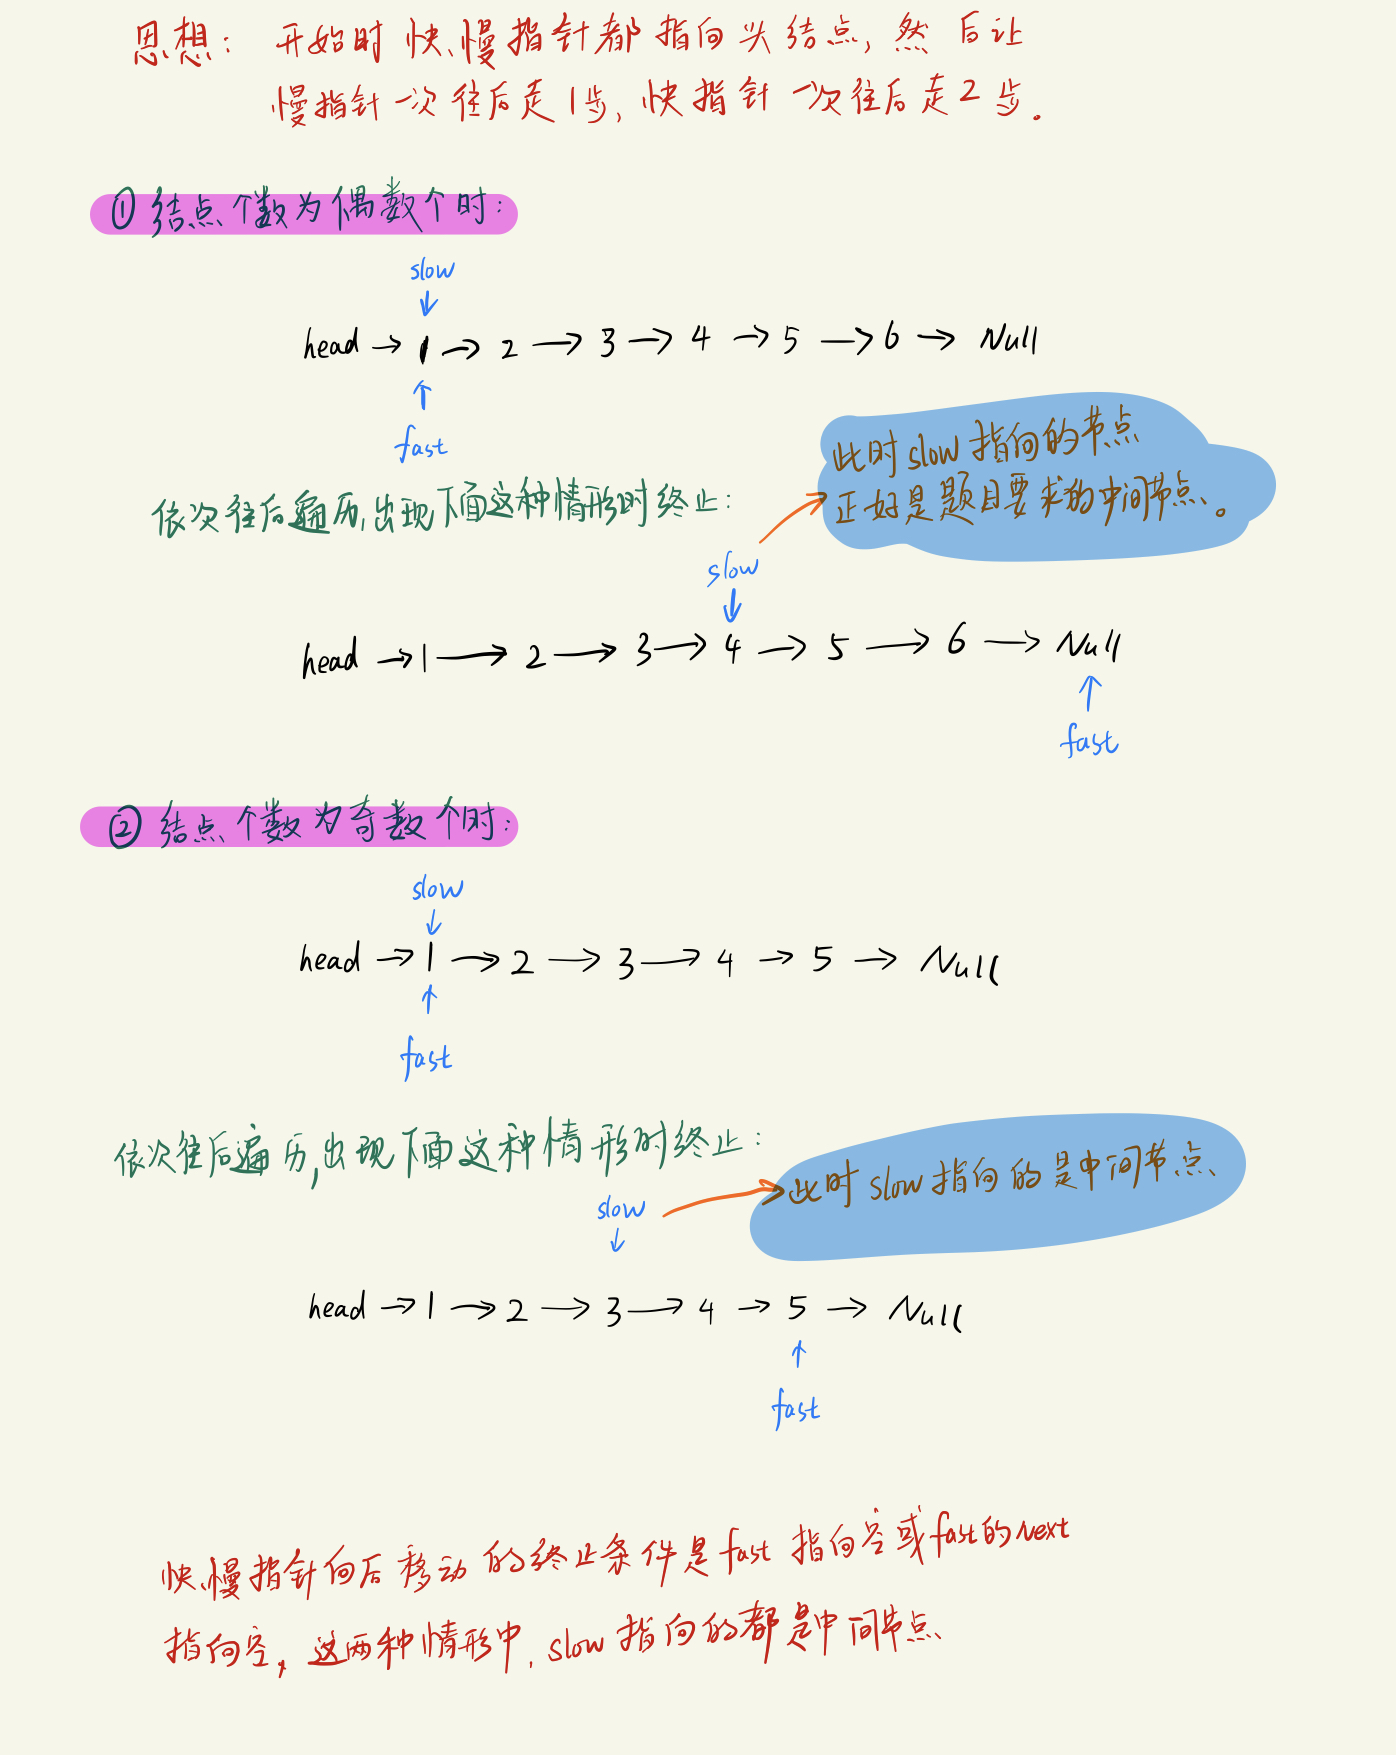 思想： 开始时快、慢指针都指向头结点，然后让
慢指针一次往后走1步，快指针一次往后走2步.
① 结点个数为偶数个时：
slow
↓
head → 1 → 2 → 3 → 4 → 5 → 6 → Null
↑
fast
此时slow指向的节点
正好是题目要求的中间节点。
依次往后遍历,出现下面这种情形时终止：
slow
↓
head → 1 → 2 → 3 → 4 → 5 → 6 → Null
↑
fast
② 结点个数为奇数个时：
slow
↓
head → 1 → 2 → 3 → 4 → 5 → Null
↑
fast
依次往后遍历,出现下面这种情形时终止：
此时slow指向的是中间节点
slow
↓
head → 1 → 2 → 3 → 4 → 5 → Null
↑
fast
快、慢指针向后移动的终止条件是fast指向空或fast的next
指向空，这两种情形中，slow指向的都是中间节点